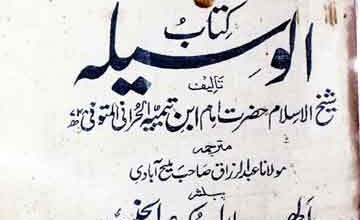 کتاب
الوسیلہ
تالیف
شیخ الاسلام حضرت امام ابن تیمیہ الحرانی المتوفی ۷۲۸ھ
مترجمہ
مولانا عبدالرزاق صاحب ملیح آبادی
پبلشر